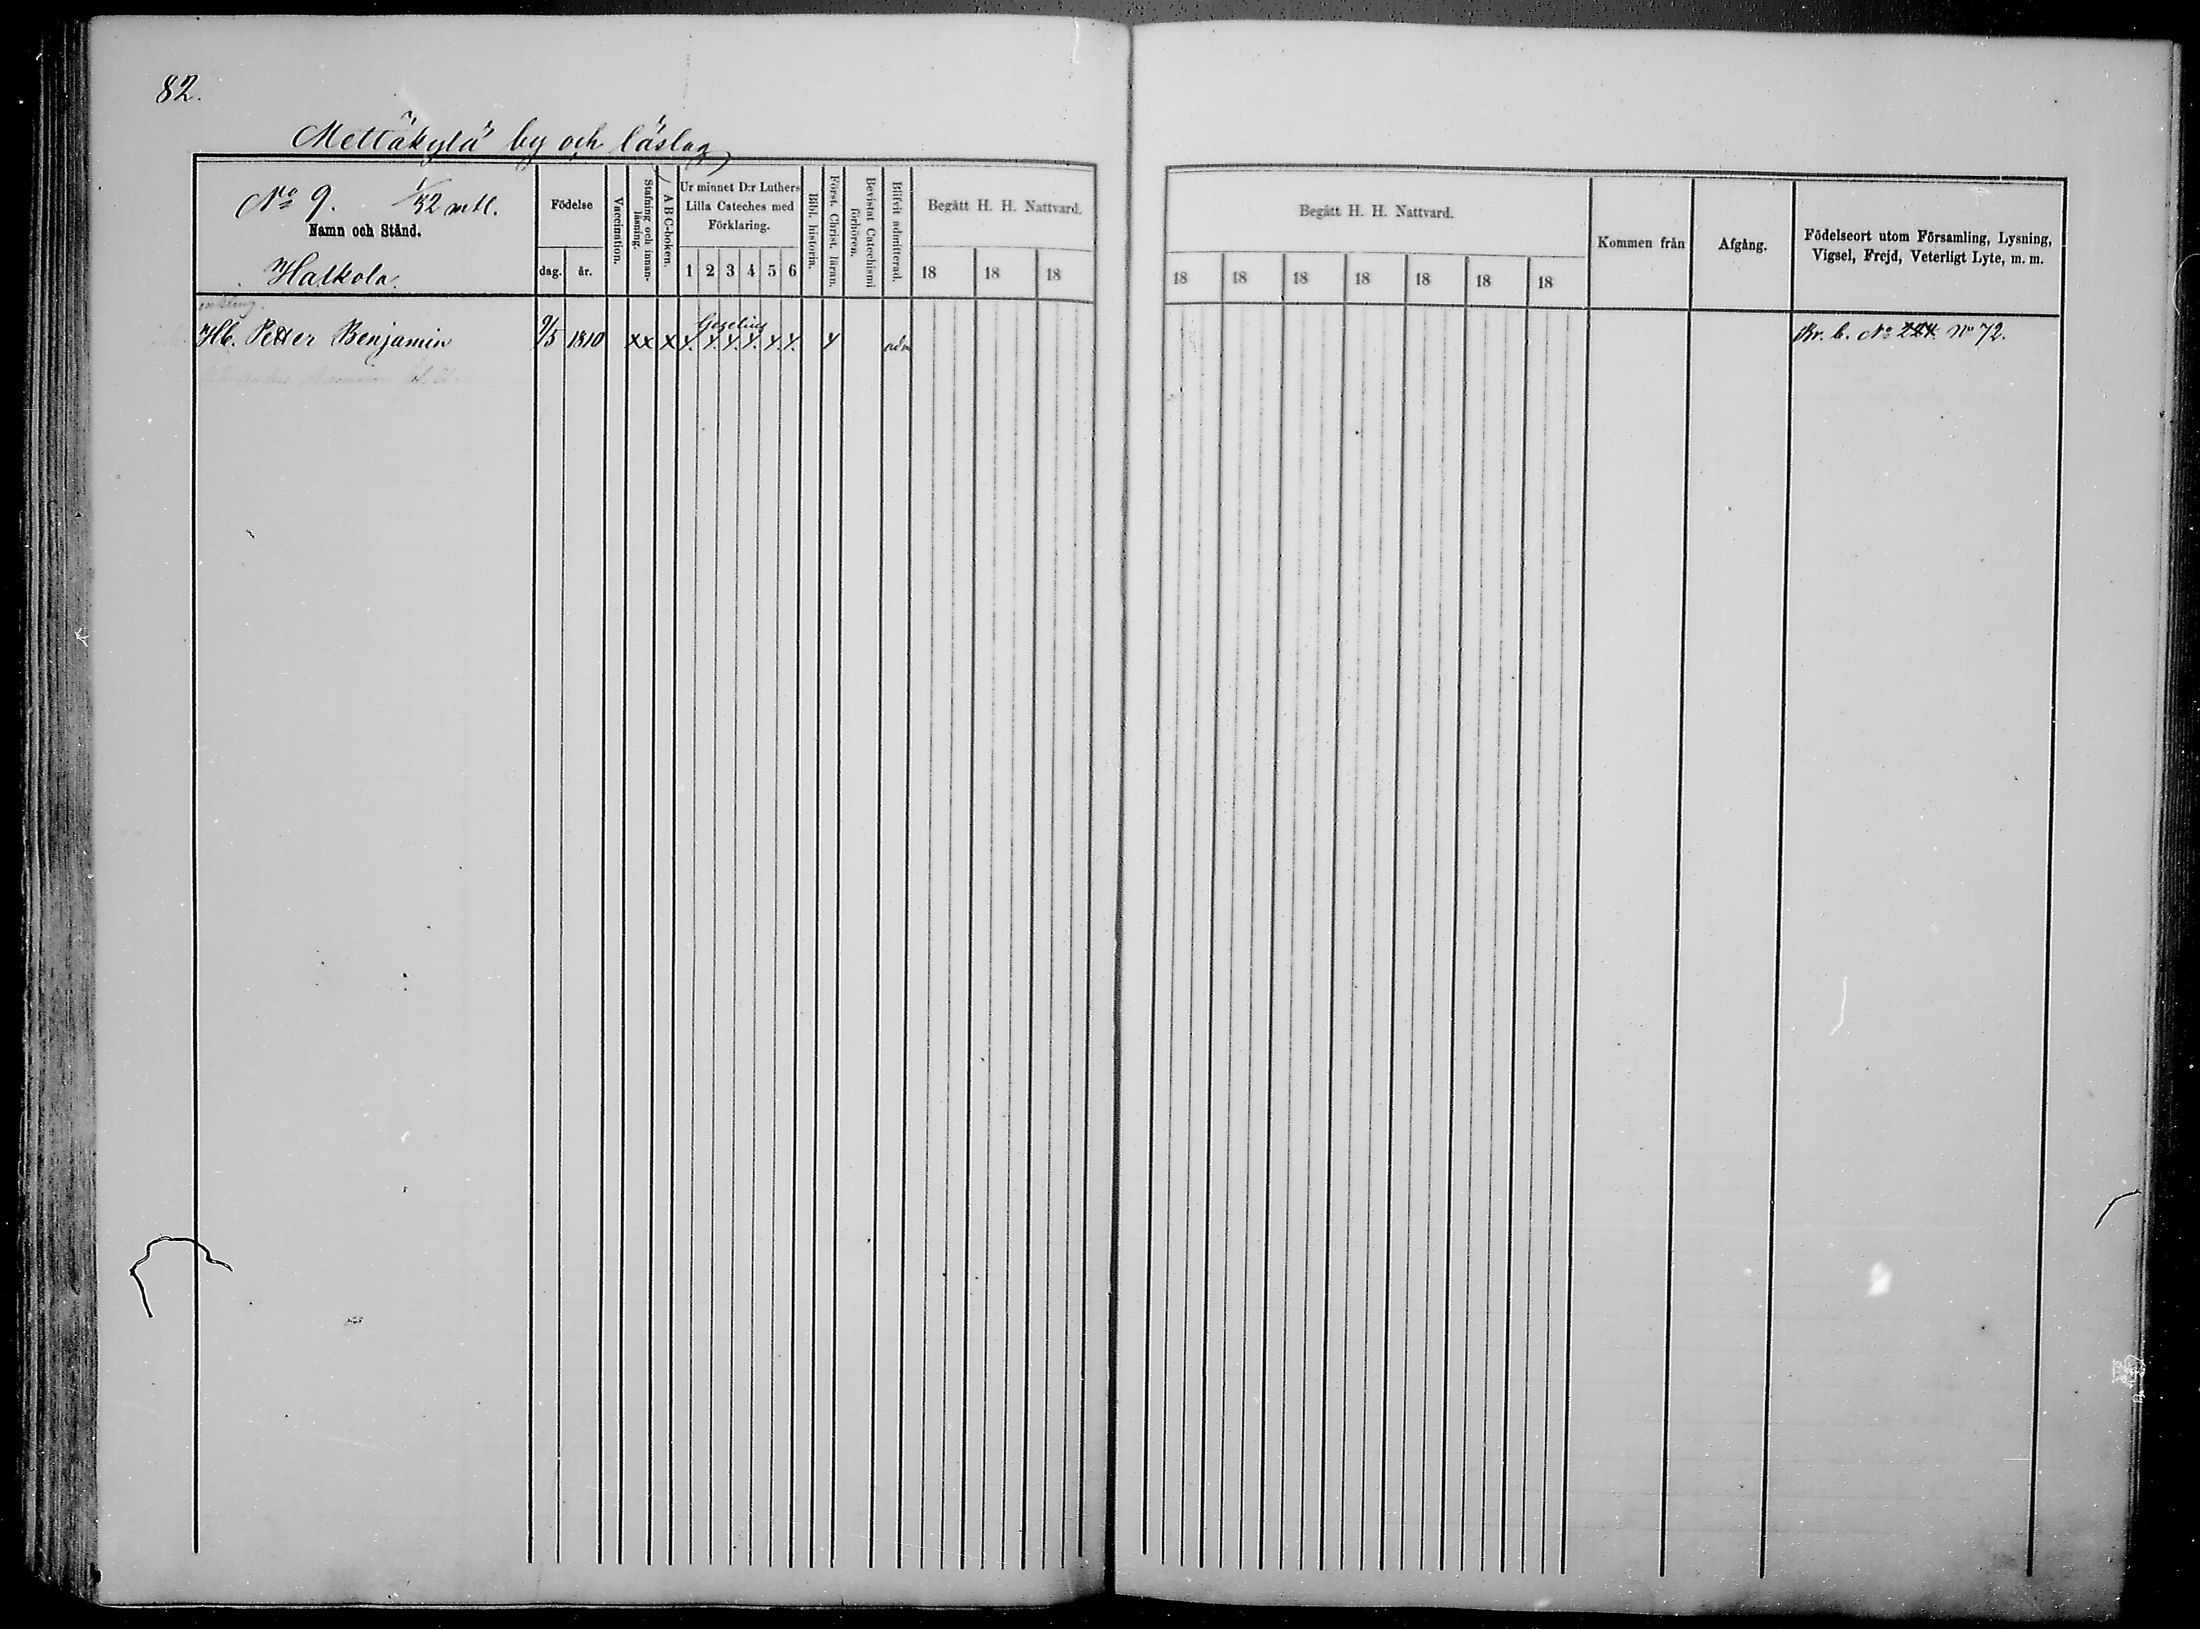 82.
Mettäkylä by och läslag
No 9. 1/32 mtl.
Namn och Stånd.
Halkola.
Födelse
dag. år.
Vaccination.
Stafning och innan-läsning.
ABC-boken.
Ur minnet D:r Luthers
Lilla Cateches med
Förklaring.
1 2 3 4 5 6
Bibl. historia.
Först. Christ. läran.
Bevistat Catechismi förhören.
Blifvit admitterad.
Begått H. H. Nattvard.
18 18 18
Begått H. H. Nattvard.
18 18 18 18 18 18 18
Kommen från
Afgång.
Födelseort utom Församling, Lysning,
Vigsel, Frejd, Veterligt Lyte, m. m.
Hb. Petter Benjamin 9/5 1810 xx x adm Br. b. No No 72.